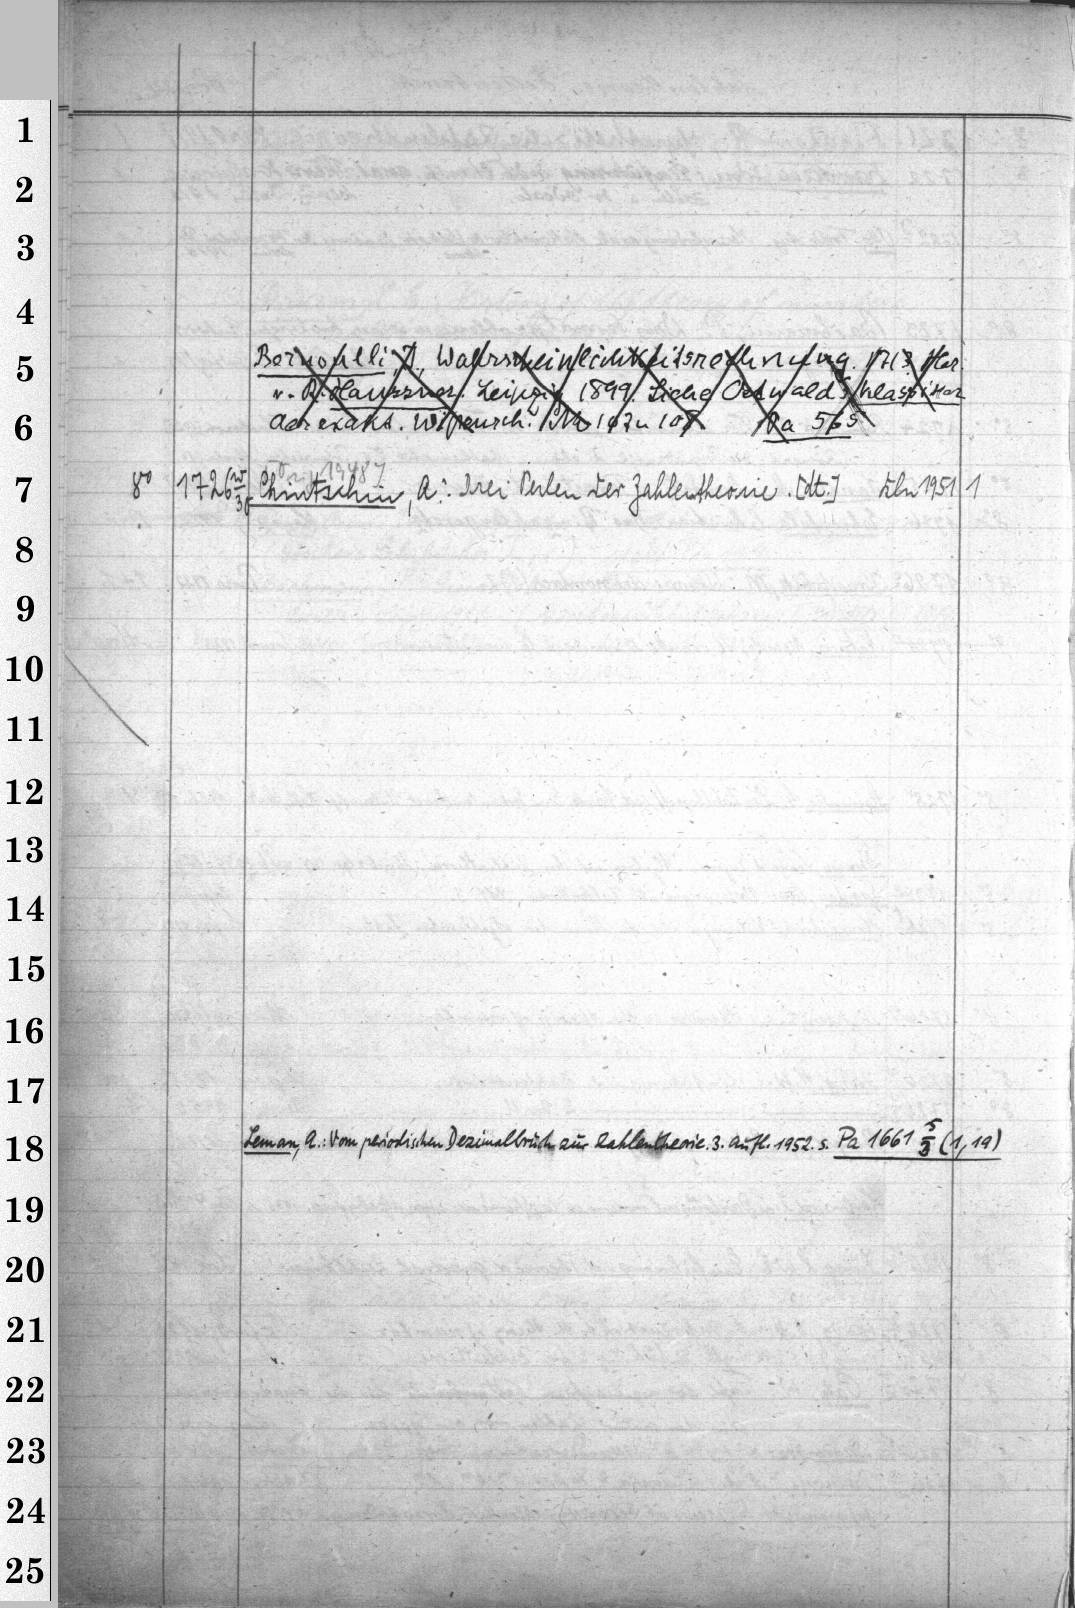 1
2
3
4
5 Bernoulli, J., Wahrscheinlichkeitsrechnung. 1713. Her.
u. R. Haussner. Leipzig 1899. Siehe Ostwald's Klassiker
6 der exakt. Wissensch. Nr. 107 u 108 Pa 565
7 8° 1726 w/36 Chintschin, A.: Drei Perlen der Zahlentheorie. [dt.] Bln 1951 1
8
9
10
11
12
13
14
15
16
17
18 Leman, A.: Vom periodischen Dezimalbruch zur Zahlentheorie. 3. Aufl. 1952. s. Pa 1661 5/3 (1,19)
19
20
21
22
23
24
25